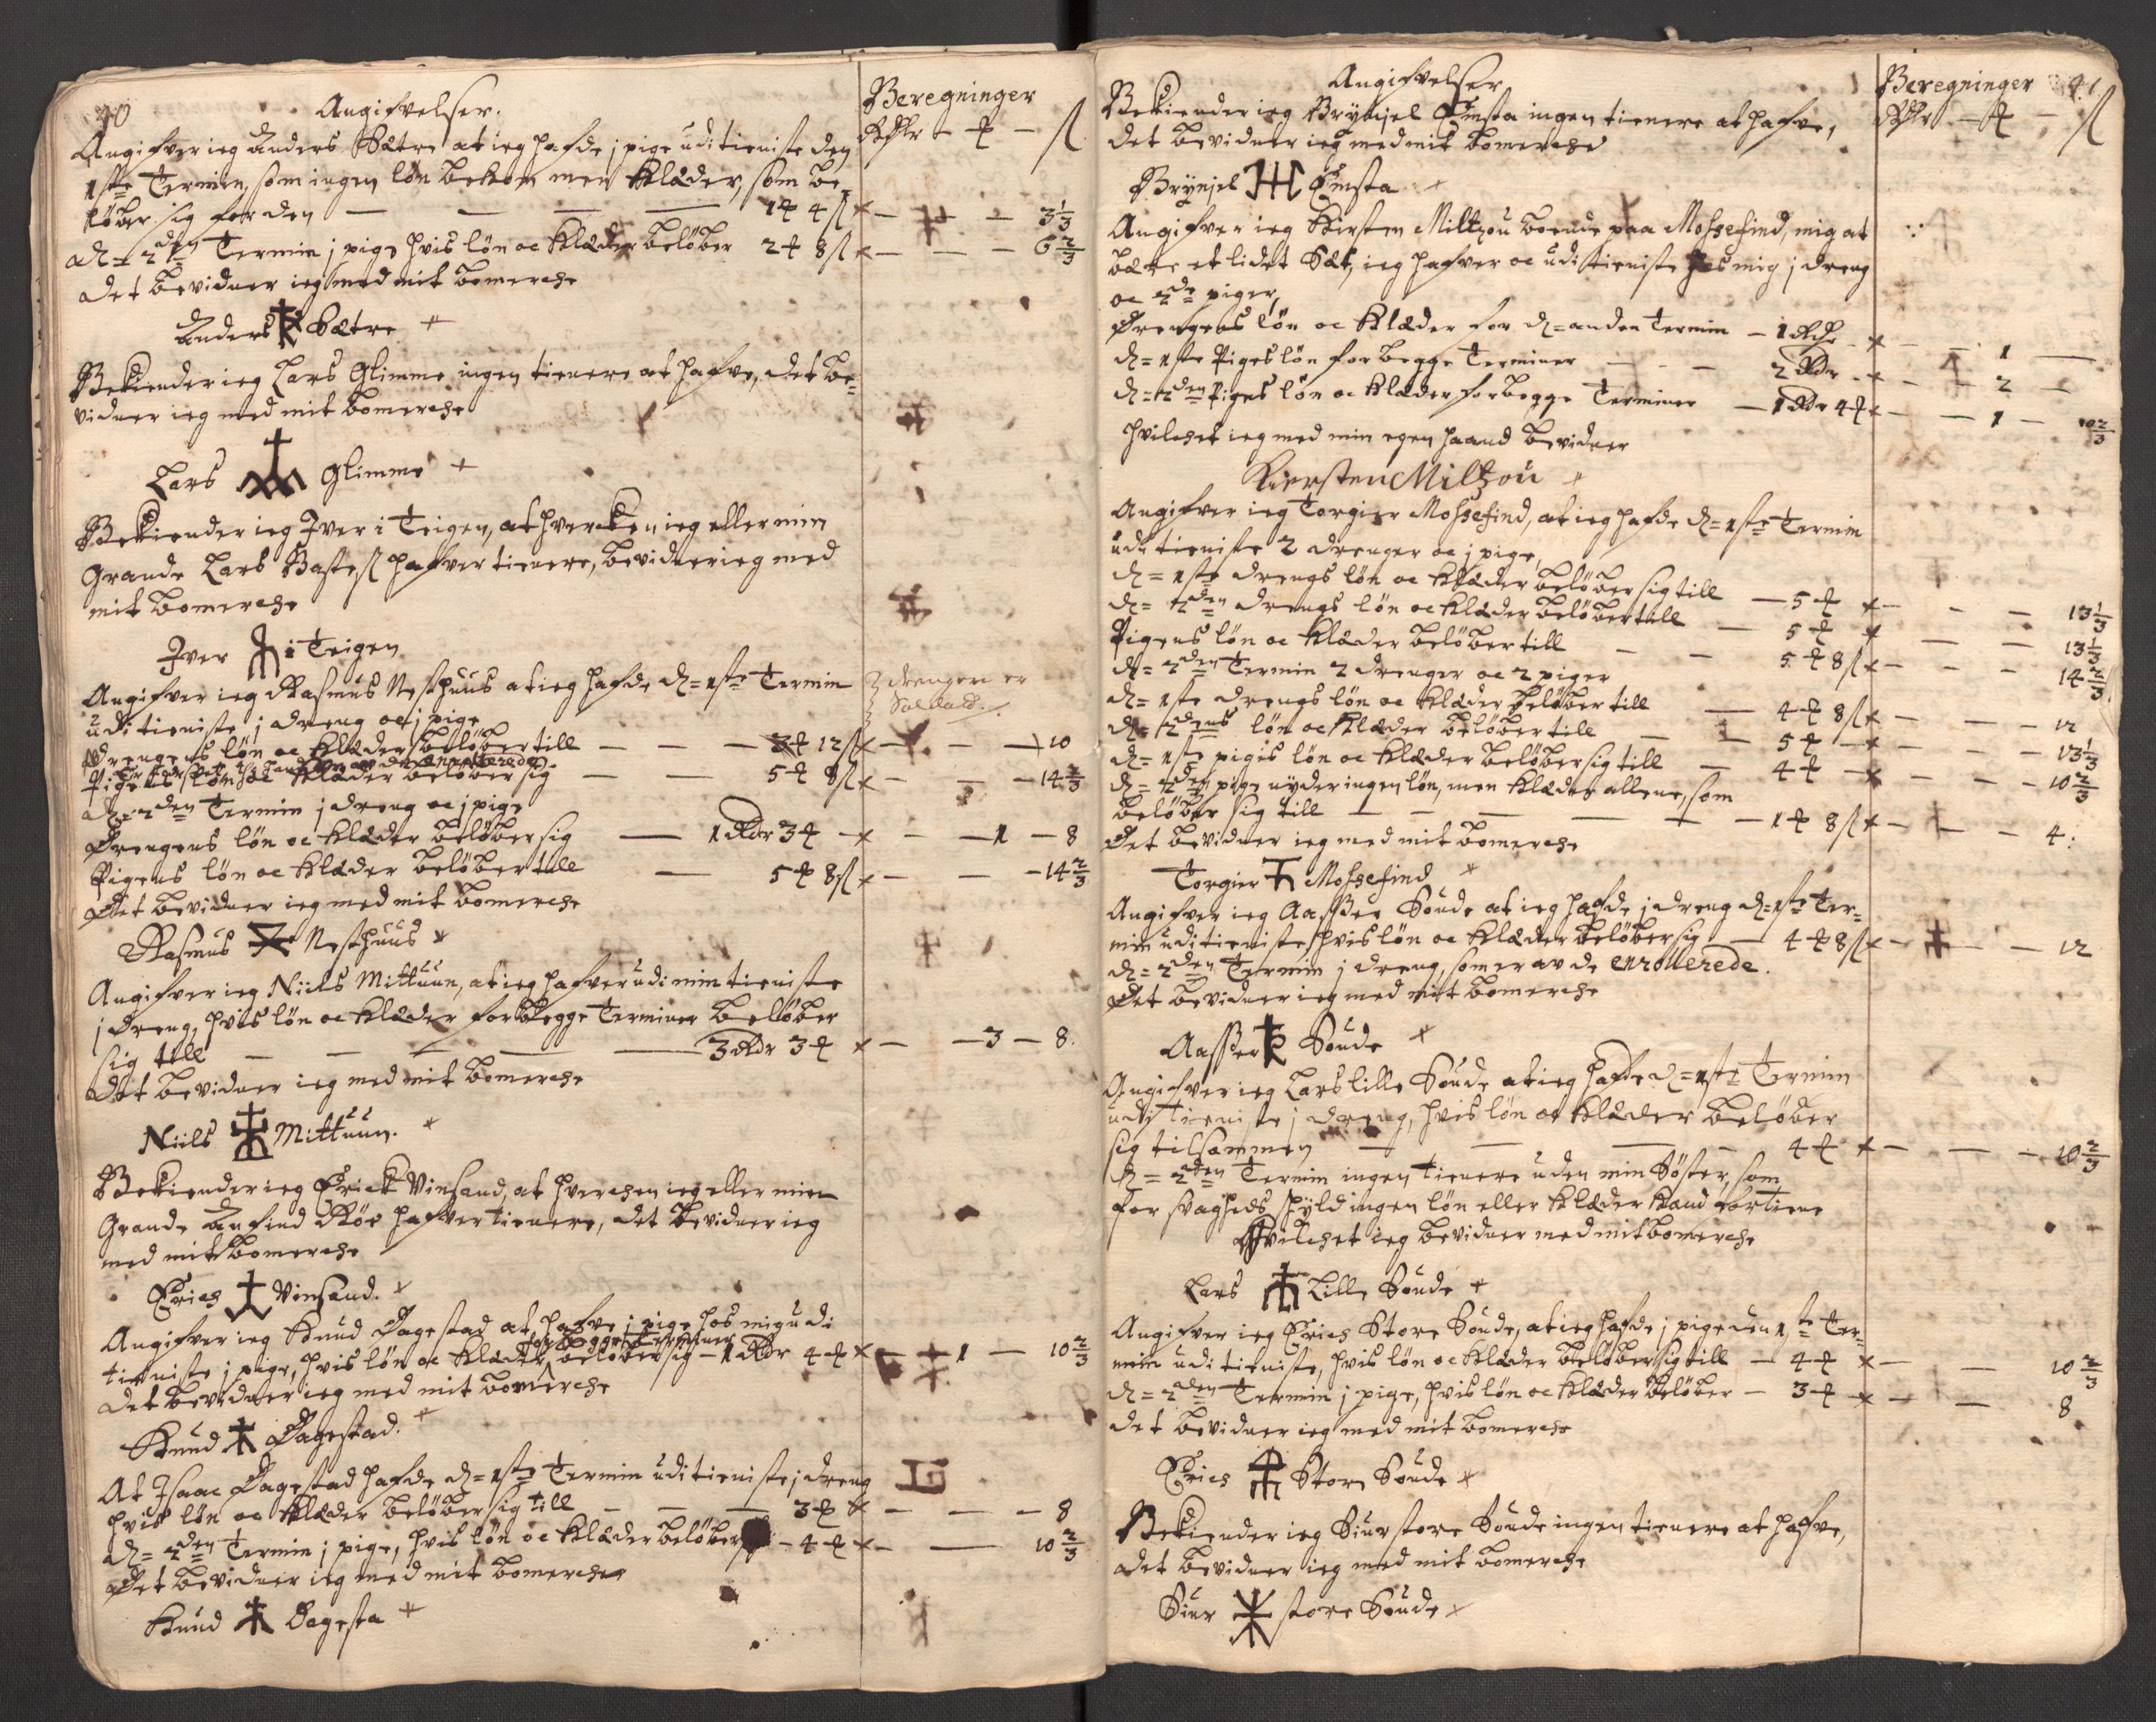 40
Angifvelser.
Beregninger
Rdlr — ℔ — ß
Angifver ieg Anders Sætre at ieg hafde j pige udi tieniste den
1ste Termin, som ingen løn bekom men Klæder, som be-
løber sig for den — — — — 1 ℔ 4 ß × — — — 3 1/3
d= 2den Termin j pige hvis løn oc Klæder beløber 2 ℔ 8 ß × — — — 6 2/3
det bevidner ieg med mit bomerche
Anders Sætre
Bekiender ieg Lars Glimme ingen tienere at hafve, det be-
vidner ieg med mit bomerche
Lars Glimme
Bekiender ieg Iver i Teigen, at hvercken ieg eller min
Grande Lars hafver tienere, bevidner ieg med
mit bomerche
Iver i Teigen
Angifver ieg Rasmus Nesthuus at ieg hafde d= 1ste Termin
udi tieniste j dreng oc j pige
drengen er
Soldat.
drengens løn oc Klæder beløber till — — — 3 ℔ 12 ß × — — — 10
enrollerede
Pigens løn oc Klæder beløber sig — — 5 ℔ 8 ß × — — — 14 2/3
d= 2den Termin j dreng oc j pige
Drengens løn oc Klæder beløber sig — 1 Rdr 3 ℔ × — — 1 — 8
Pigens løn oc Klæder beløber till — 5 ℔ 8 ß × — — — 14 2/3
Det bevidner ieg med mit bomerche
Rasmus Nesthuus
Angifver ieg Niils Mittuun, at ieg hafver udi min tieniste
j dreng, hvis løn oc Klæder for begge Terminer beløber
sig till — — — — 3 Rdr 3 ℔ × — — 3 — 8.
det bevidner ieg med mit bomerche
Niils Mittuun.
Bekiender ieg Erick Vinsand, at hverchen ieg eller min
Grande Anfind Røe hafver tienere, det bevidner ieg
med mit bomerche
Erich Vinsand.
Angifver ieg Knud Dagestad at hafve j pige hos mig udi
for begge Terminer
tieniste j pige, hvis løn oc Klæder beløber sig — 1 Rdr 4 ℔ × — — 1 — 10 2/3
det bevidner ieg med mit bomerche
Knud Dagestad.
At Isaac Dagestad hafde d= 1ste Termin udi tieniste j dreng
hvis løn oc Klæder beløber sig till — — — 3 ℔ × — — — 8
d= 2den Termin j pige, hvis løn oc Klæder beløber — 4 ℔ × — — 10 2/3
Det bevidner ieg med mit bomerche
Knud Dagesta
Angifvelser
Beregninger 41
Rdlr — ℔ — ß
Bekiender ieg Brynjel Emsta ingen tienere at hafve,
det bevidner ieg med mit bomerche
Brynjel Emsta
Angifver ieg Kirsten Miltzou boende paa Mossefind, mig at
bære et lidet Sæt, ieg hafver oc udi tieniste hos mig j dreng
oc 2de piger,
Drengens løn oc Klæder for d= anden Termin — 1 Rdr × — — 1 —
d= 1ste Piges løn for begge Terminer — — 2 Rdr × — — 2 —
d= 2den Piges løn oc Klæder for begge Terminer — 1 Rdr 4 ℔ × — — 1 — 10 2/3
hvilchet ieg med min egen haand bevidner
Kiersten Miltzou
Angifver ieg Torgier Mossefind, at ieg hafde d= 1ste Termin
udi tieniste 2 drenger oc j pige,
d= 1ste drengs løn oc Klæder beløber sig till — 5 ℔ × — — — 13 1/3
d= 2den drengs løn oc Klæder beløber till — 5 ℔ × — — 13 1/3
Pigens løn oc Klæder beløber till — — 5 ℔ 8 ß × — — — 14 2/3
d= 2den Termin 2 drenger oc 2 piger
d= 1ste drengs løn oc Klæder beløber till — 4 ℔ 8 ß × — — — 12
d= 2dens løn oc Klæder beløber till — — 5 ℔ — × — — — 13 1/3
d= 1ste piges løn oc Klæder beløber sig till — 4 ℔ — × — — — 10 2/3
d= 2den pige nyder ingen løn, men Klæder allene, som
beløber sig till — — — — 1 ℔ 8 ß × — — — 4:
Det bevidner ieg med mit bomerche
Torgier Mossefind
Angifver ieg Aasser Soude at ieg hafde j dreng d= 1ste Ter-
min udi tieniste, hvis løn oc Klæder beløber sig — 4 ℔ 8 ß × — — — 12
d= 2den Termin j dreng, som er av de enrollerede.
Det bevidner ieg med mit bomerche
Aasser Soude
Angifver ieg Lars lille Soude at ieg hafde d= 1ste Termin
udi tieniste j dreng, hvis løn oc Klæder beløber
sig tilsammen — — — 4 ℔ × — — — 10 2/3
d= 2den Termin ingen tienere uden min Søster, som
for svagheds skyld ingen løn eller Klæder kand fortiene
Hvilchet ieg bevidner med mit bomerche
Lars Lille Soude
Angifver ieg Erich Store Soude, at ieg hafde j pige den 1ste Ter-
min udi tieniste, hvis løn oc Klæder beløber sig till — 4 ℔ × — — 10 2/3
d= 2den Termin j pige, hvis løn oc Klæder beløber — 3 ℔ × — — 8
det bevidner ieg med mit bomerche
Erich Store Soude
Bekiender ieg Siur store Soude ingen tienere at hafve,
det bevidner ieg med mit bomerche
Siur store Soude